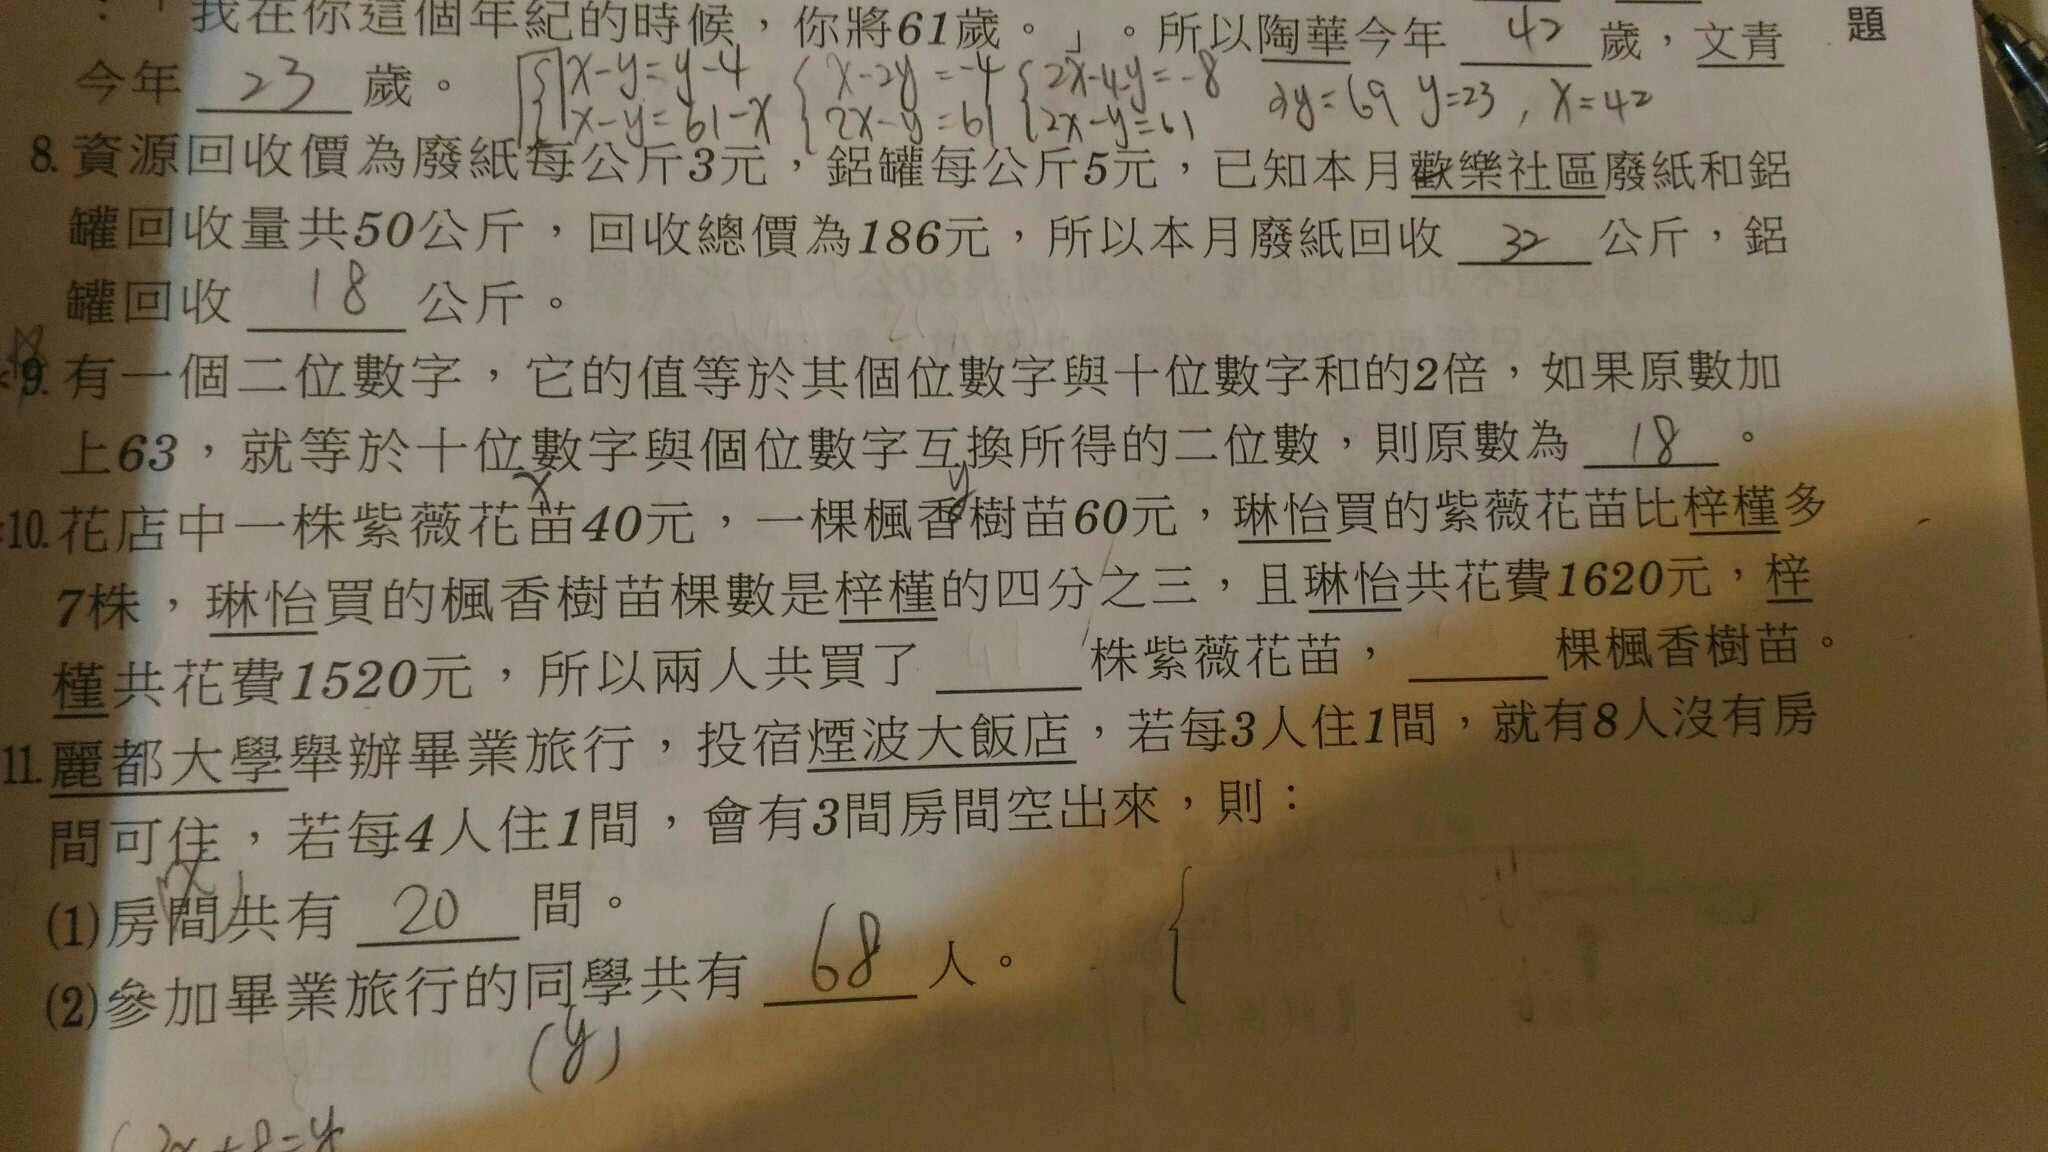 ：「我在你這個年紀的時候，你將61歲。」。所以陶華今年 42 歲，文青
題
今年 23 歲。
x-y=y-4 x-2y=-4 2x-4y=-8
x-y=61-x 2x-y=61 2x-y=61
3y=69 y=23, x=42
8. 資源回收價為廢紙每公斤3元，鋁罐每公斤5元，已知本月歡樂社區廢紙和鋁
罐回收量共50公斤，回收總價為186元，所以本月廢紙回收 32 公斤，鋁
罐回收 18 公斤。
9. 有一個二位數字，它的值等於其個位數字與十位數字和的2倍，如果原數加
上63，就等於十位數字與個位數字互換所得的二位數，則原數為 18 。
x y
10. 花店中一株紫薇花苗40元，一棵楓香樹苗60元，琳怡買的紫薇花苗比梓槿多
7株，琳怡買的楓香樹苗棵數是梓槿的四分之三，且琳怡共花費1620元，梓
槿共花費1520元，所以兩人共買了 株紫薇花苗， 棵楓香樹苗。
11. 麗都大學舉辦畢業旅行，投宿煙波大飯店，若每3人住1間，就有8人沒有房
間可住，若每4人住1間，會有3間房間空出來，則：
(x)
(1)房間共有 20 間。
(2)參加畢業旅行的同學共有 68 人。
(y)
3x+8=y